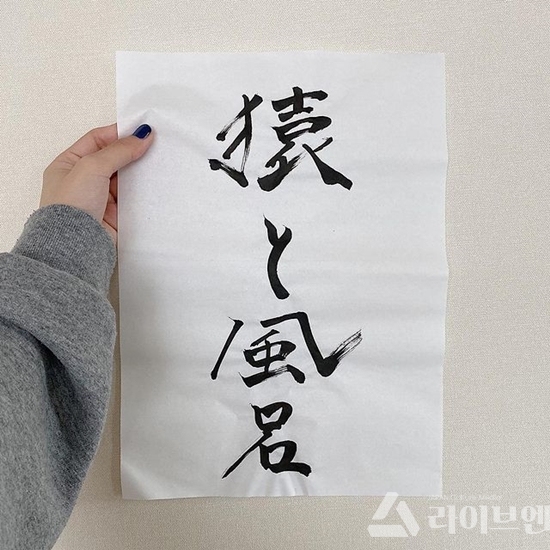 猿と風呂
라이브엔